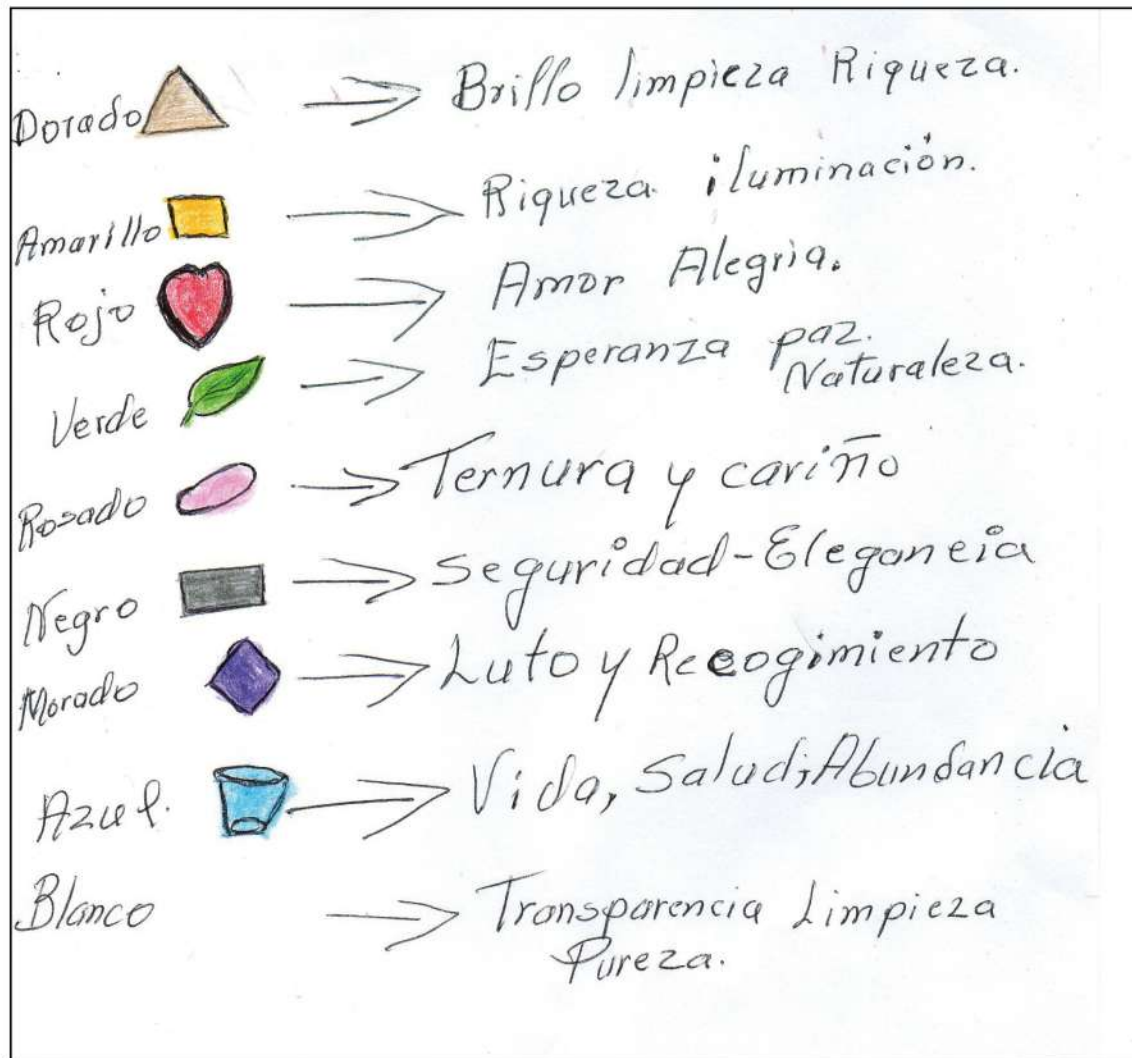 Dorado Brillo limpieza Riqueza.
Amarillo Riqueza. iluminación.
Rojo Amor Alegria.
Verde Esperanza paz.
Naturaleza.
Rosado Ternura y cariño
Negro seguridad-Elegancia
Morado Luto y Recogimiento
Azul. Vida, Salud, Abundancia
Blanco Transparencia Limpieza
Pureza.